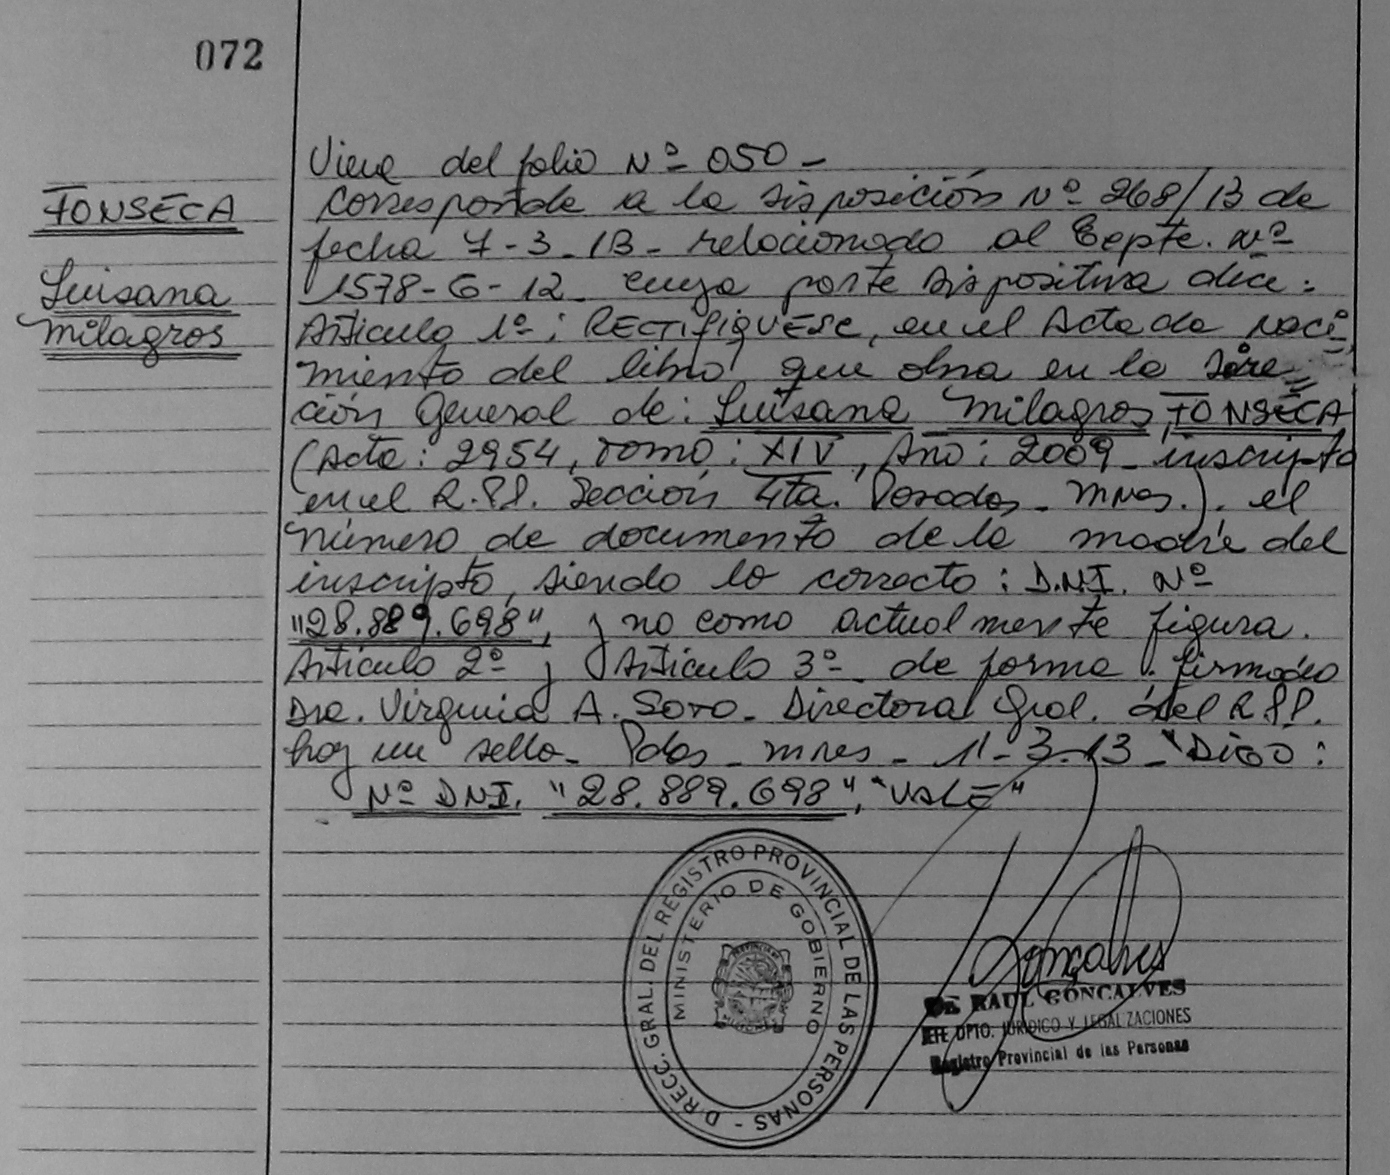 072
FONSECA
Luisana
Milagros
Viene del folio Nº 050 -
Corresponde a la disposición Nº 268/13 de
fecha 7-3-13- relacionado al Expte. Nº
1578-G-12- cuya parte dispositiva dice:
Articulo 1º: RECTIFIQUESE, en el Acta de naci=
miento del libro que obra en la Dire=
ción General de: Luisana Milagros, FONSECA
(Acta: 2954, Tomo: XIV, Año: 2009- inscripto
en el R.P.P. Sección 4ta. Posadas- Mnes.). el
número de documento de la madre del
inscripto, siendo lo correcto: D.N.I. Nº
"28.889.698", y no como actualmente figura.
Articulo 2º y Articulo 3º de forma. firmado
Dra. Virginia A. Soto- Directora Gral. del R.P.P.
hay un sello- Pdas- Mnes- 11-3-13- "Digo:
Nº DNI. "28.889.698", "VALE"
D RECC. GRAL. DEL REGISTRO PROVINCIAL DE LAS PERSONAS -
MINISTERIO DE GOBIERNO
Gonçalves
RAUL GONCALVES
JEFE DPTO. JURIDICO Y LEGALIZACIONES
Registro Provincial de las Personas